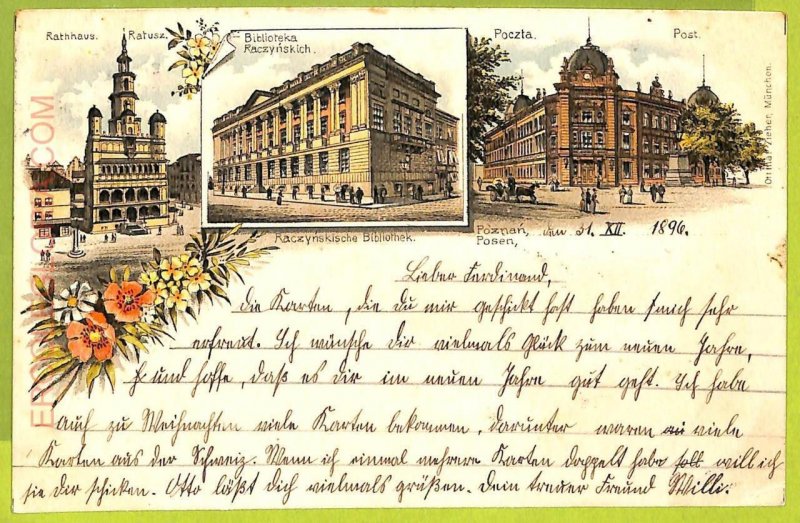 Rathhaus. Ratusz.
Biblioteka
Raczyńskich.
Poczta. Post.
Ottmar Zieher, München.
Raczyńskische Bibliothek.
Poznań,
Posen, den 31. XII. 1896.
Lieber Ferdinand,
Die Karten, die Du mir geschickt hast haben mich sehr
erfreut. Ich wünsche Dir vielmals Glück zum neuen Jahre,
und hoffe, daß es dir im neuen Jahre gut geht. Ich habe
auch zu Weihnachten viele Karten bekommen, darunter waren viele
Karten aus der Schweiz. Wenn ich einmal mehrere Karten doppelt habe will ich
sie dir schicken. Otto läßt dich vielmals grüßen. Dein treuer Freund Willi.